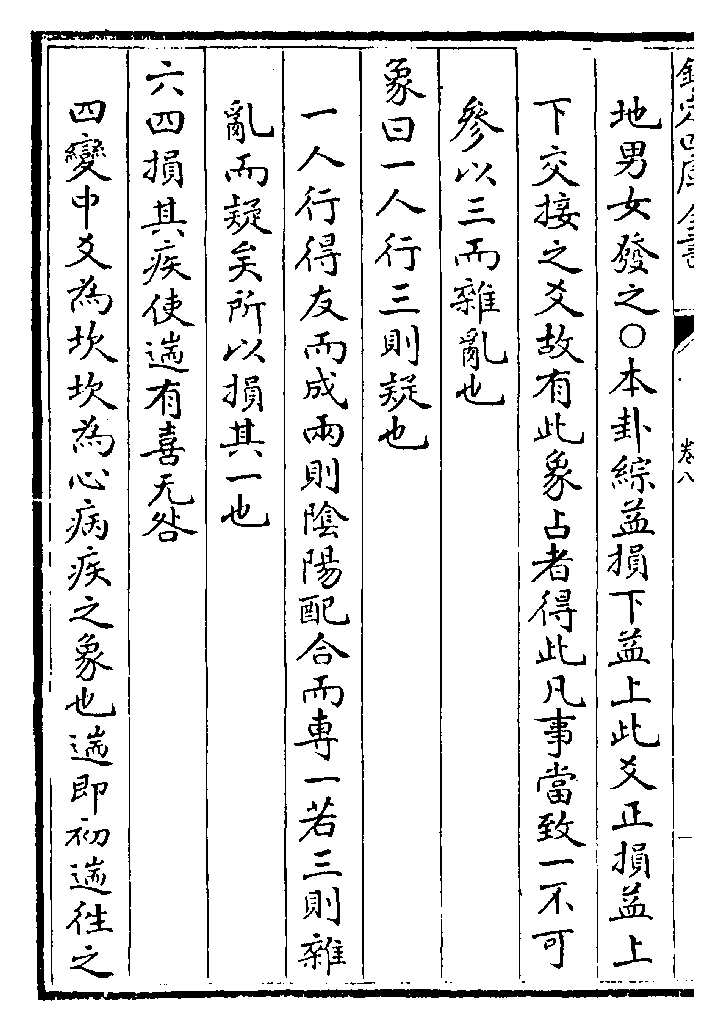 欽定四庫全書
卷八
地男女發之○本卦綜益損下益上此爻正損益上
下交接之爻故有此象占者得此凡事當致一不可
參以三而雜亂也
象曰一人行三則疑也
一人行得友而成兩則陰陽配合而專一若三則雜
亂而疑矣所以損其一也
六四損其疾使遄有喜无咎
四變中爻為坎坎為心病疾之象也遄即初遄徃之